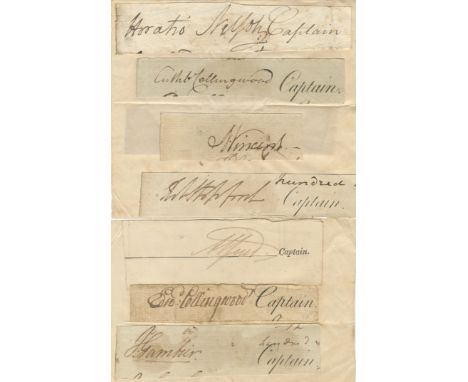 Horatio Nelson Captain
Cuthbt Collingwood Captain.
St Vincent
hundred
Captain.
Captain.
Edwd Collingwood Captain
J Gambier
Captain.